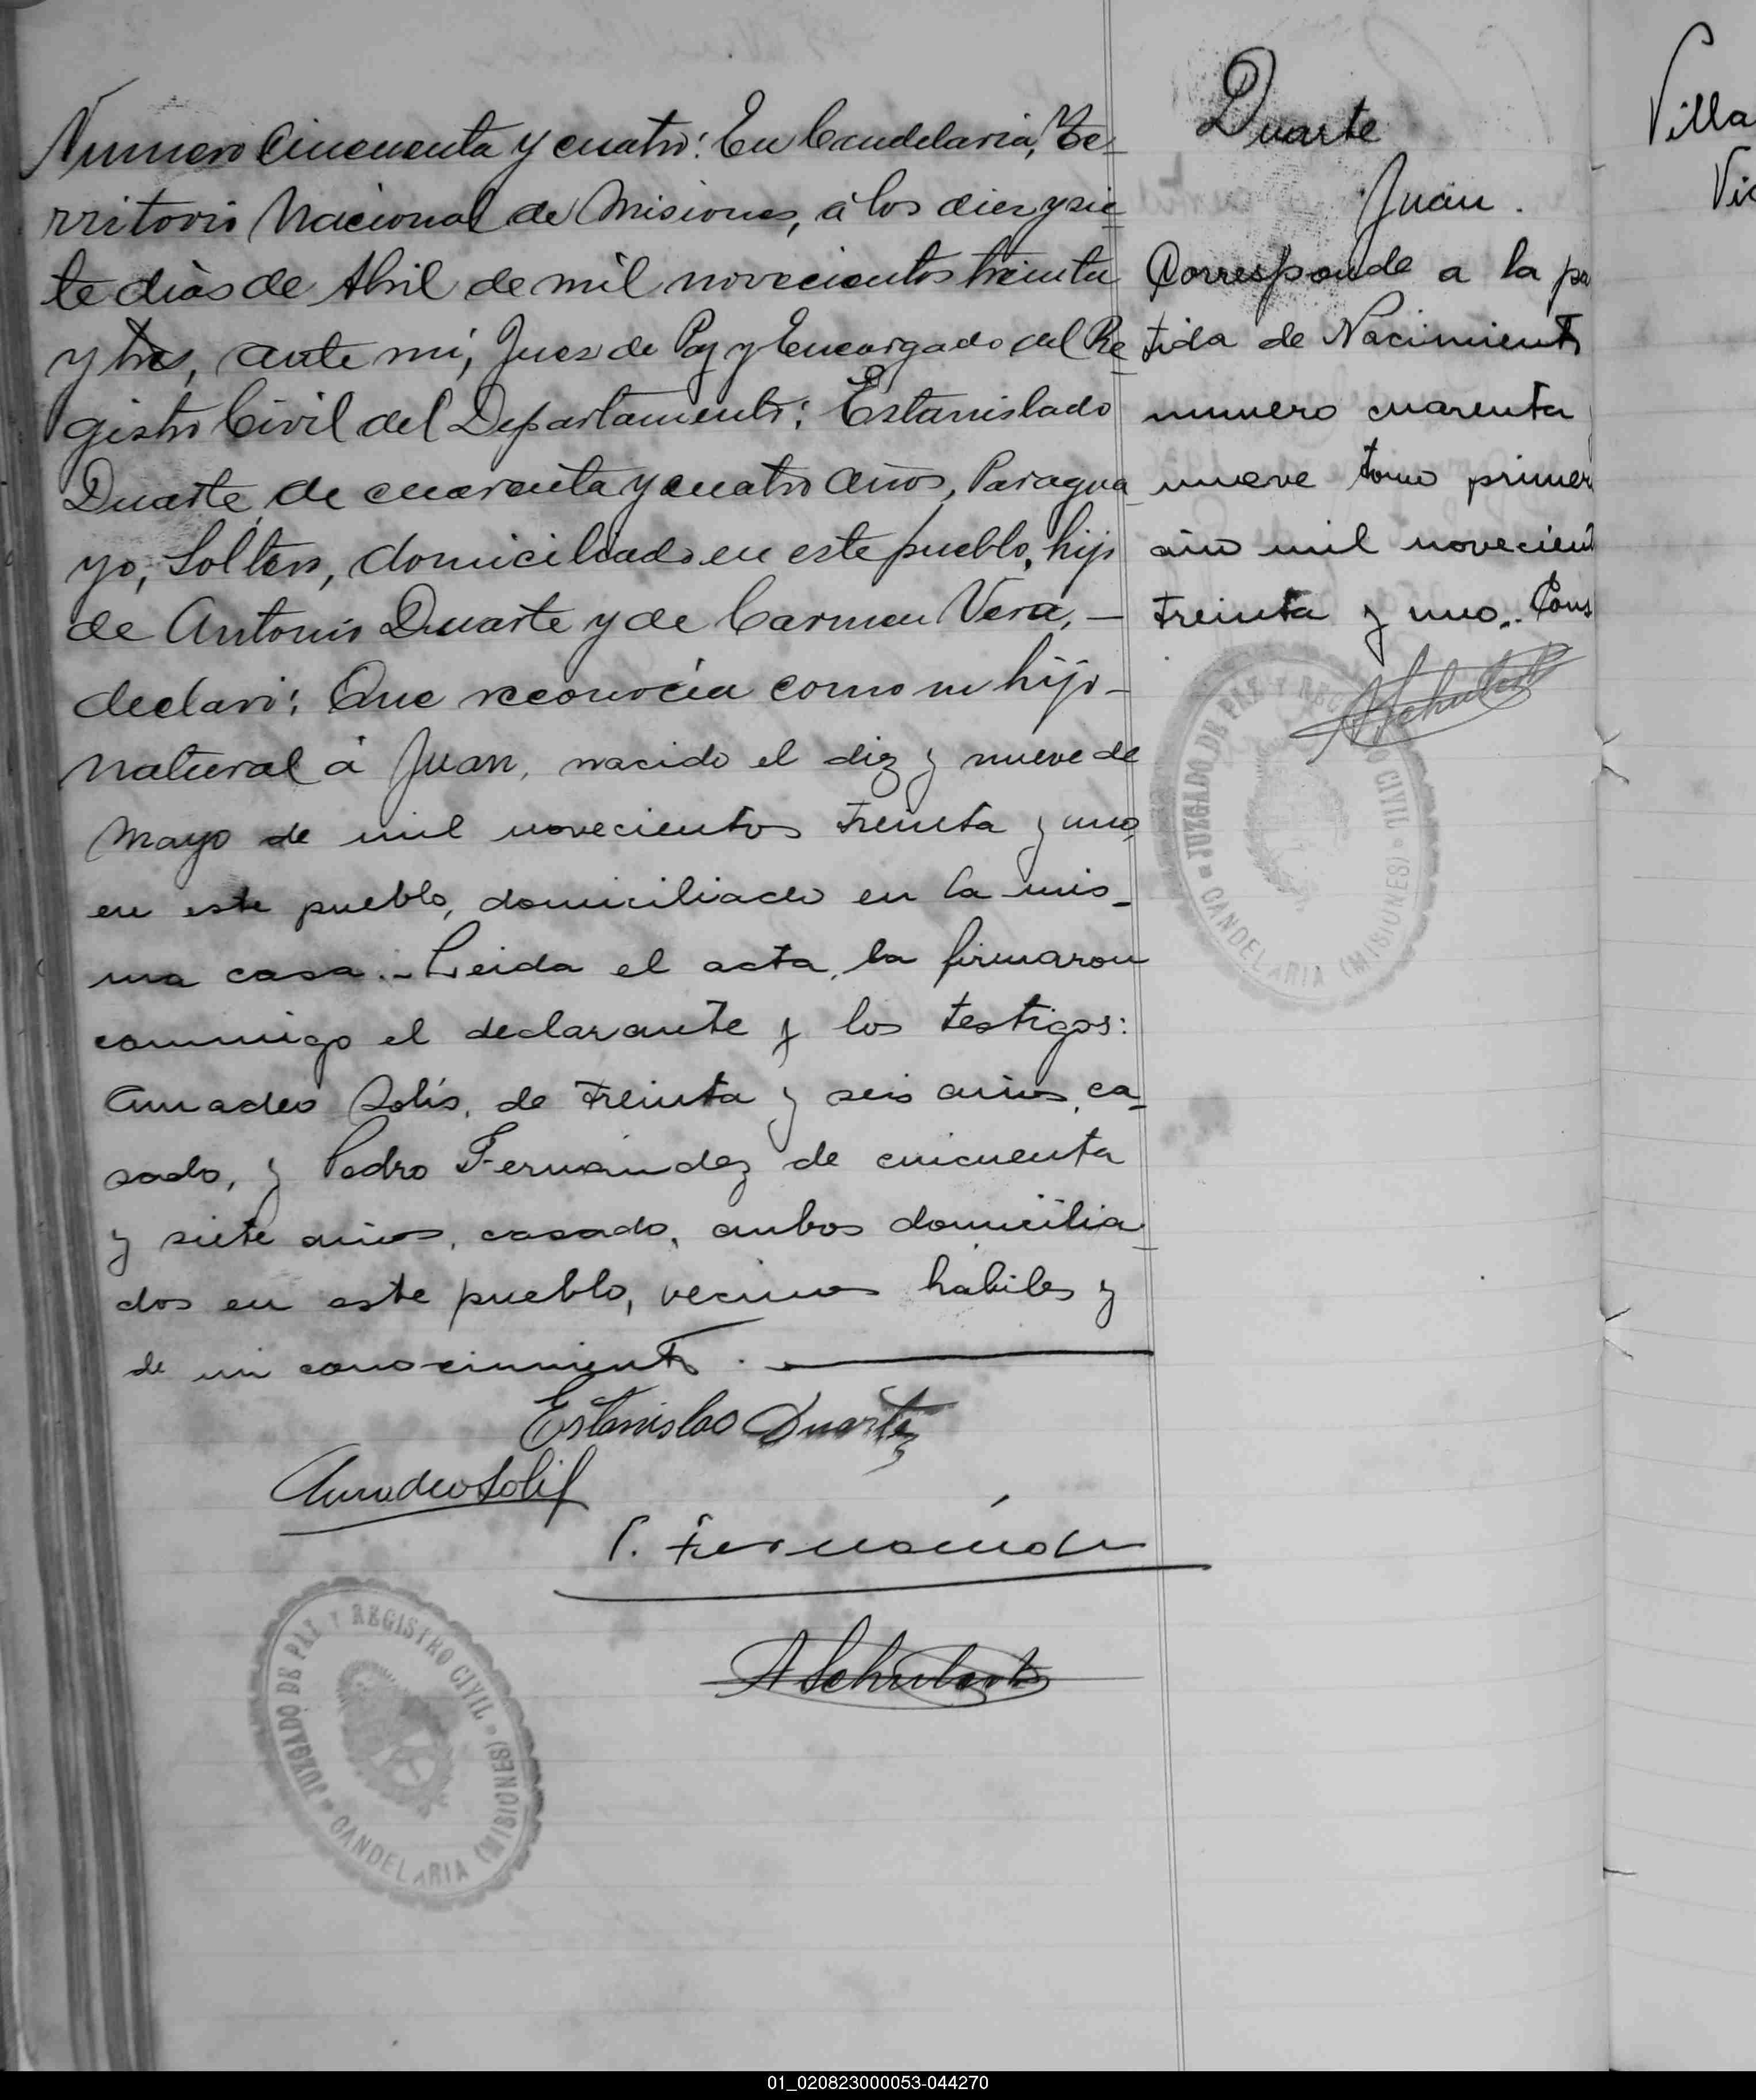 Numero Cincuenta y cuatro: En Candelaria, Te-
rritorio Nacional de Misiones, á los diez y sie-
te dias de Abril de mil novecientos treinta
y tres, ante mi, Juez de Paz y Encargado del Re-
gistro Civil del Departamento: Estanislado
Duarte, de cuarenta y cuatro años, Paragua-
yo, soltero, domiciliado en este pueblo, hijo
de Antonio Duarte y de Carmen Vera, —
declaró: Que reconocia como su hijo -
natural á Juan, nacido el diez y nueve de
Mayo de mil novecientos treinta y uno,
en este pueblo, domiciliado en la mis-
ma casa.- Leida el acta, la firmaron
conmigo el declarante y los testigos:
Amadeo Solis, de treinta y seis años, ca-
sado, y Pedro Fernández de cincuenta
y siete años, casado, ambos domicilia-
dos en este pueblo, vecinos habiles y
de mi conocimiento. —
Estanislao Duarte
Amadeo Solis
P. Fernández
JUZGADO DE PAZ Y REGISTRO CIVIL
CANDELARIA (MISIONES)
Duarte
Juan.
Corresponde a la pa
tida de Nacimiento
numero cuarenta
nueve tomo primer
año mil novecient
treinta y uno.. Cons
JUZGADO DE PAZ Y REGISTRO CIVIL
CANDELARIA (MISIONES)
Villa
Vic
01_020823000053-044270